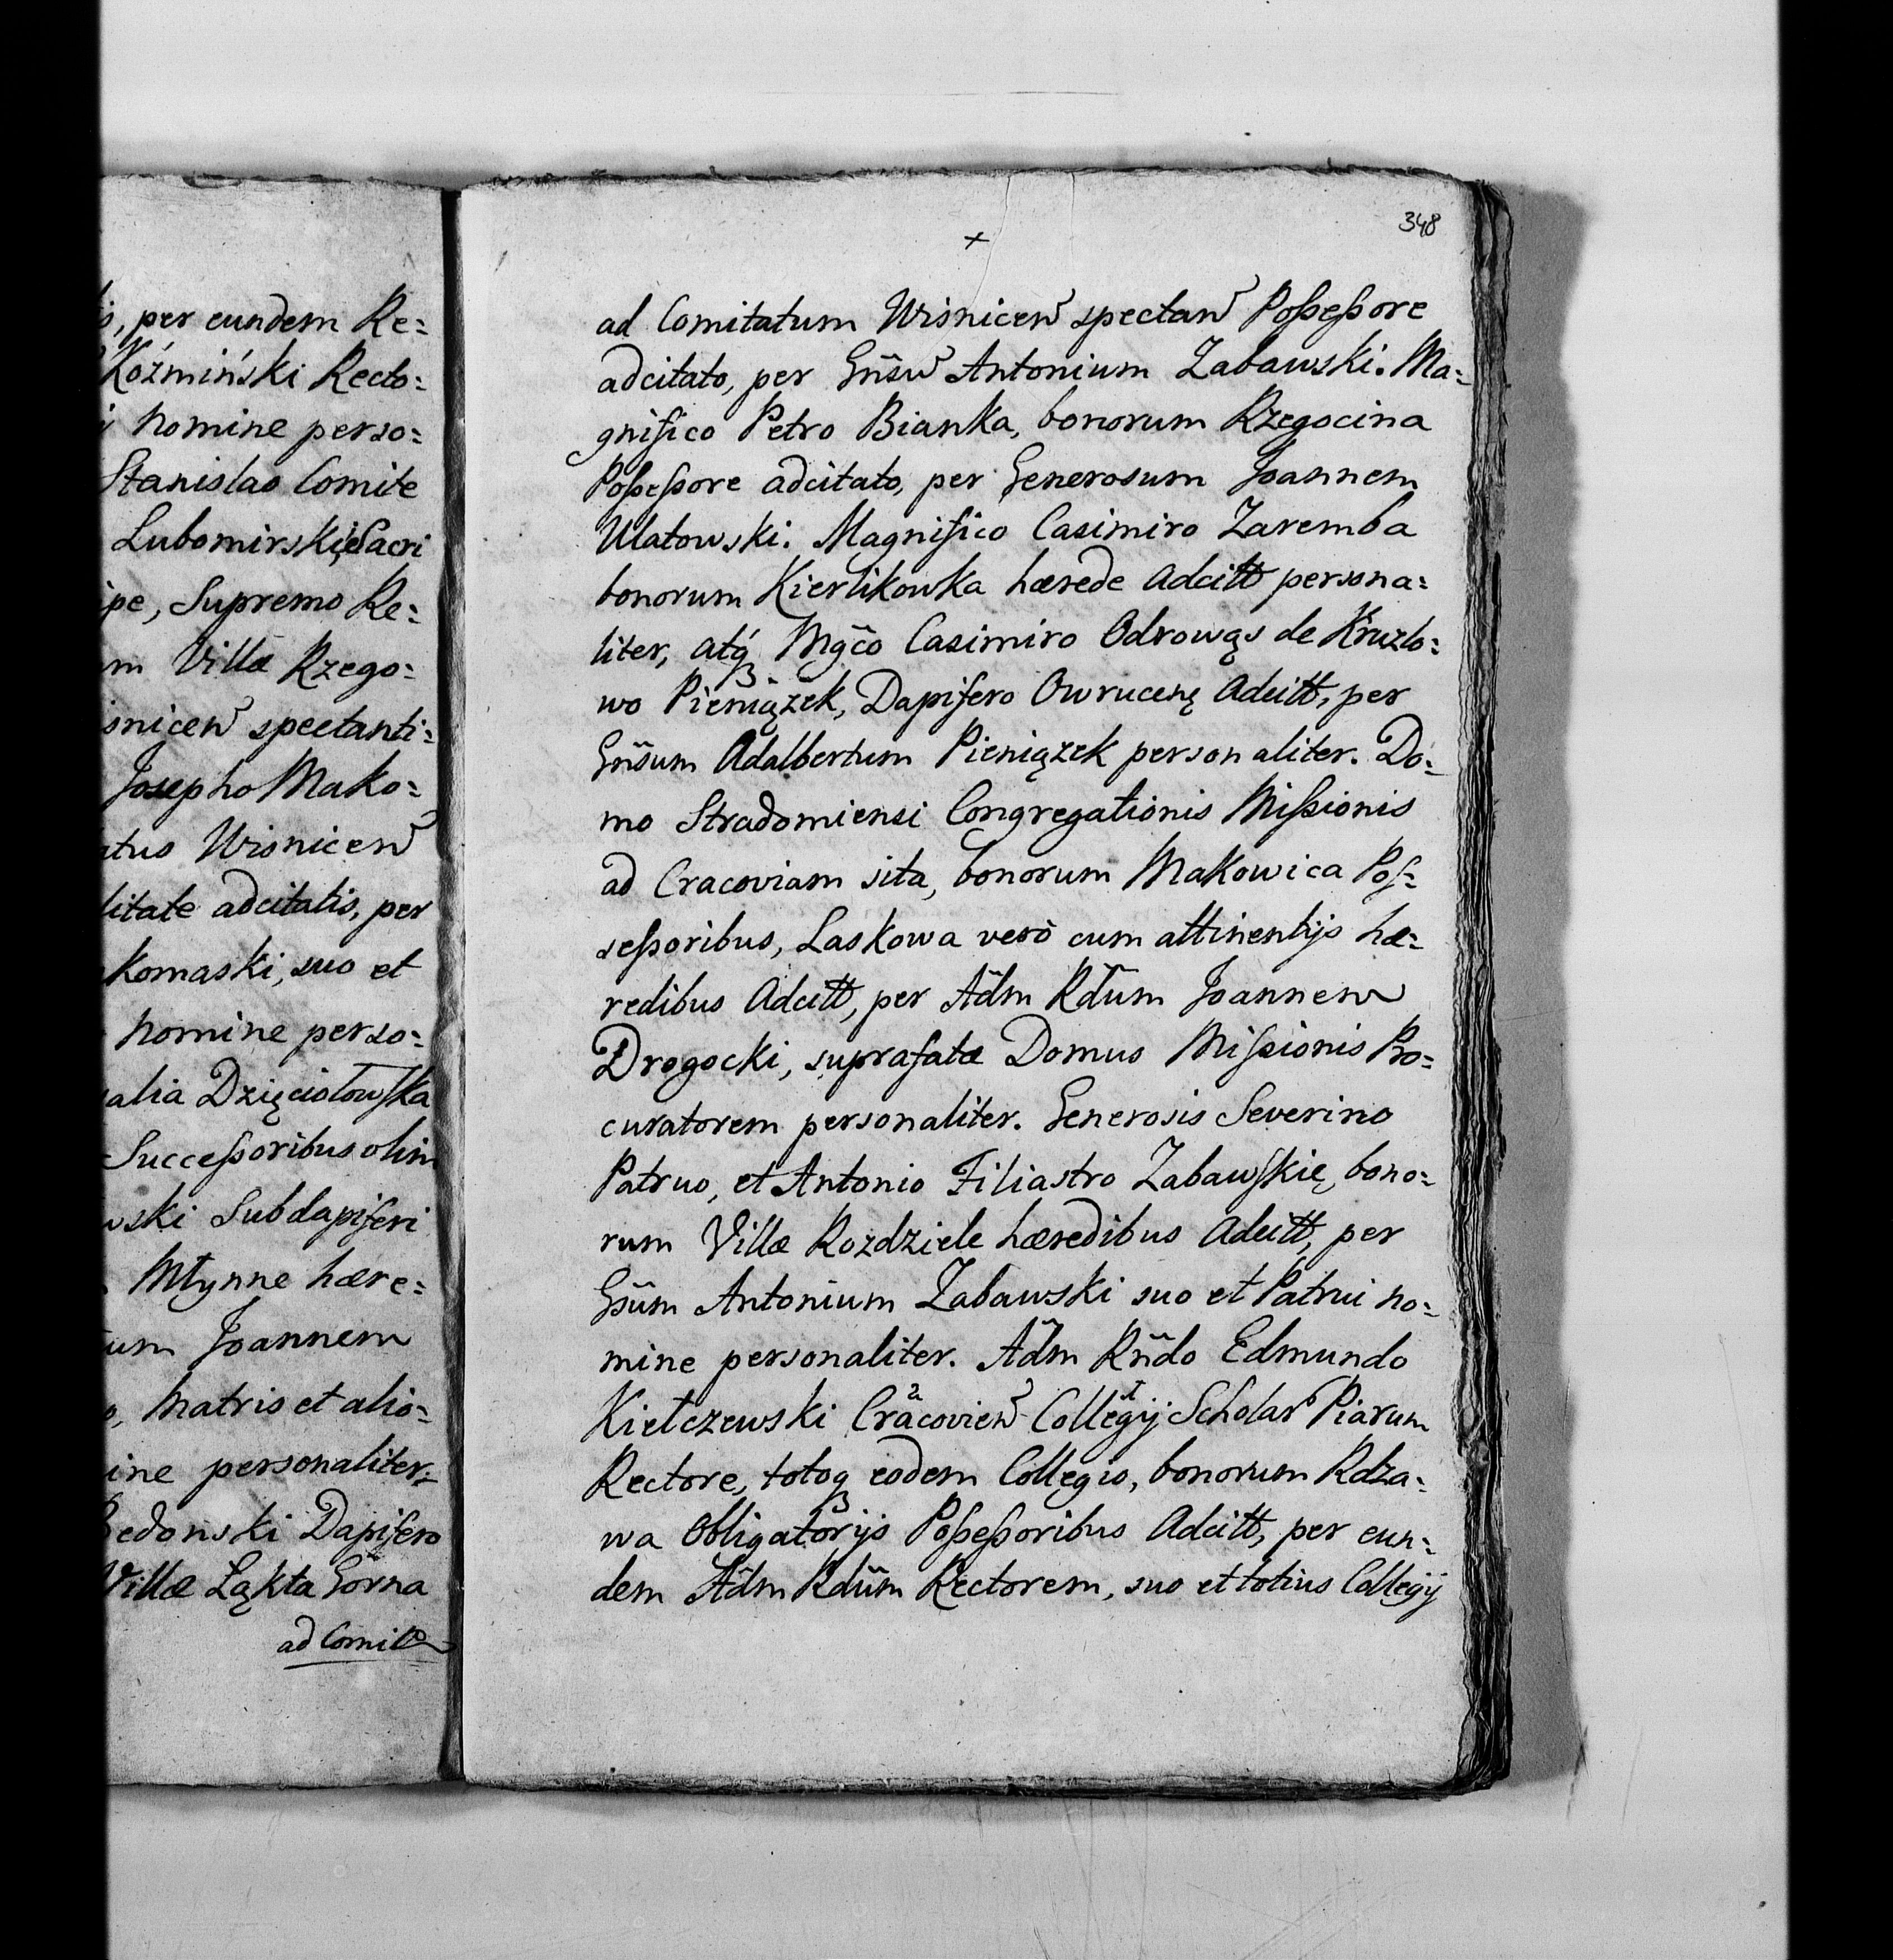 s, per eundem Re=
Koźmiński Recto=
i Nomine perso=
Stanislao Comite
Lubomirskię Sacri
ipe, Supremo Re=
m Villæ Rzego=
snicen̄ spectanti=
Josepho Mako=
atus Wisnicen̄
litate adcitatis, per
komaski, suo et
Nomine perso=
alia Dzięciołowſka
Succeſsoribus olim
wski Subdapiferi
Młynne hære=
um Joannem
o, Matris et alio=
ine personaliter=
Bedonski Dapifero
Villæ Łąkta Górna
ad Comitt
348
+
ad Comitatum Wisnicen̄ spectan̄ Poſseſsore
adcitato, per Gn̄sū Antonium Zabawski. Ma=
gnifico Petro Bianka, bonorum Rzegocina
Poſseſsore adcitato, per Generosum Joannem
Ulatowski. Magnifico Casimiro Zaremba
bonorum Kierlikowka hærede Adcitt persona=
liter, atq́ꝫ Mgc̄o Casimiro Odrowąs de Kruzlo=
wo Pieniązek, Dapifero Owrucenę Adcitt, per
Gn̄sum Adalbertum Pieniązek personaliter. Do=
mo Stradomiensi Congregationis Miſsionis
ad Cracoviam sita, bonorum Makowica Poſ=
seſsoribus, Laskowa verò cum attinentijs hæ=
redibus Adcitt, per Ad̄m Rd̄um Joannem
Drogocki, suprafatæ Domus Miſsionis Pro=
curatorem personaliter. Generosis Severino
Patruo, et Antonio Filiastro Zabawſkię, bono=
rum Villæ Rozdziele hæredibus Adcitt, per
Gs̄um Antonium Zabawski suo et Patrui no=
mine personaliter. Ad̄m Rn̄do Edmundo
Kiełczewski Cracovien̄ Collegij Scholar̄ Piarum
Rectore, totoqꝫ eodem Collegio, bonorum Rdza=
wa Obligatōrijs Poſseſsoribus Adcitt, per eun=
dem Ad̄m Rdūm Rectorem, suo et totius Collegij